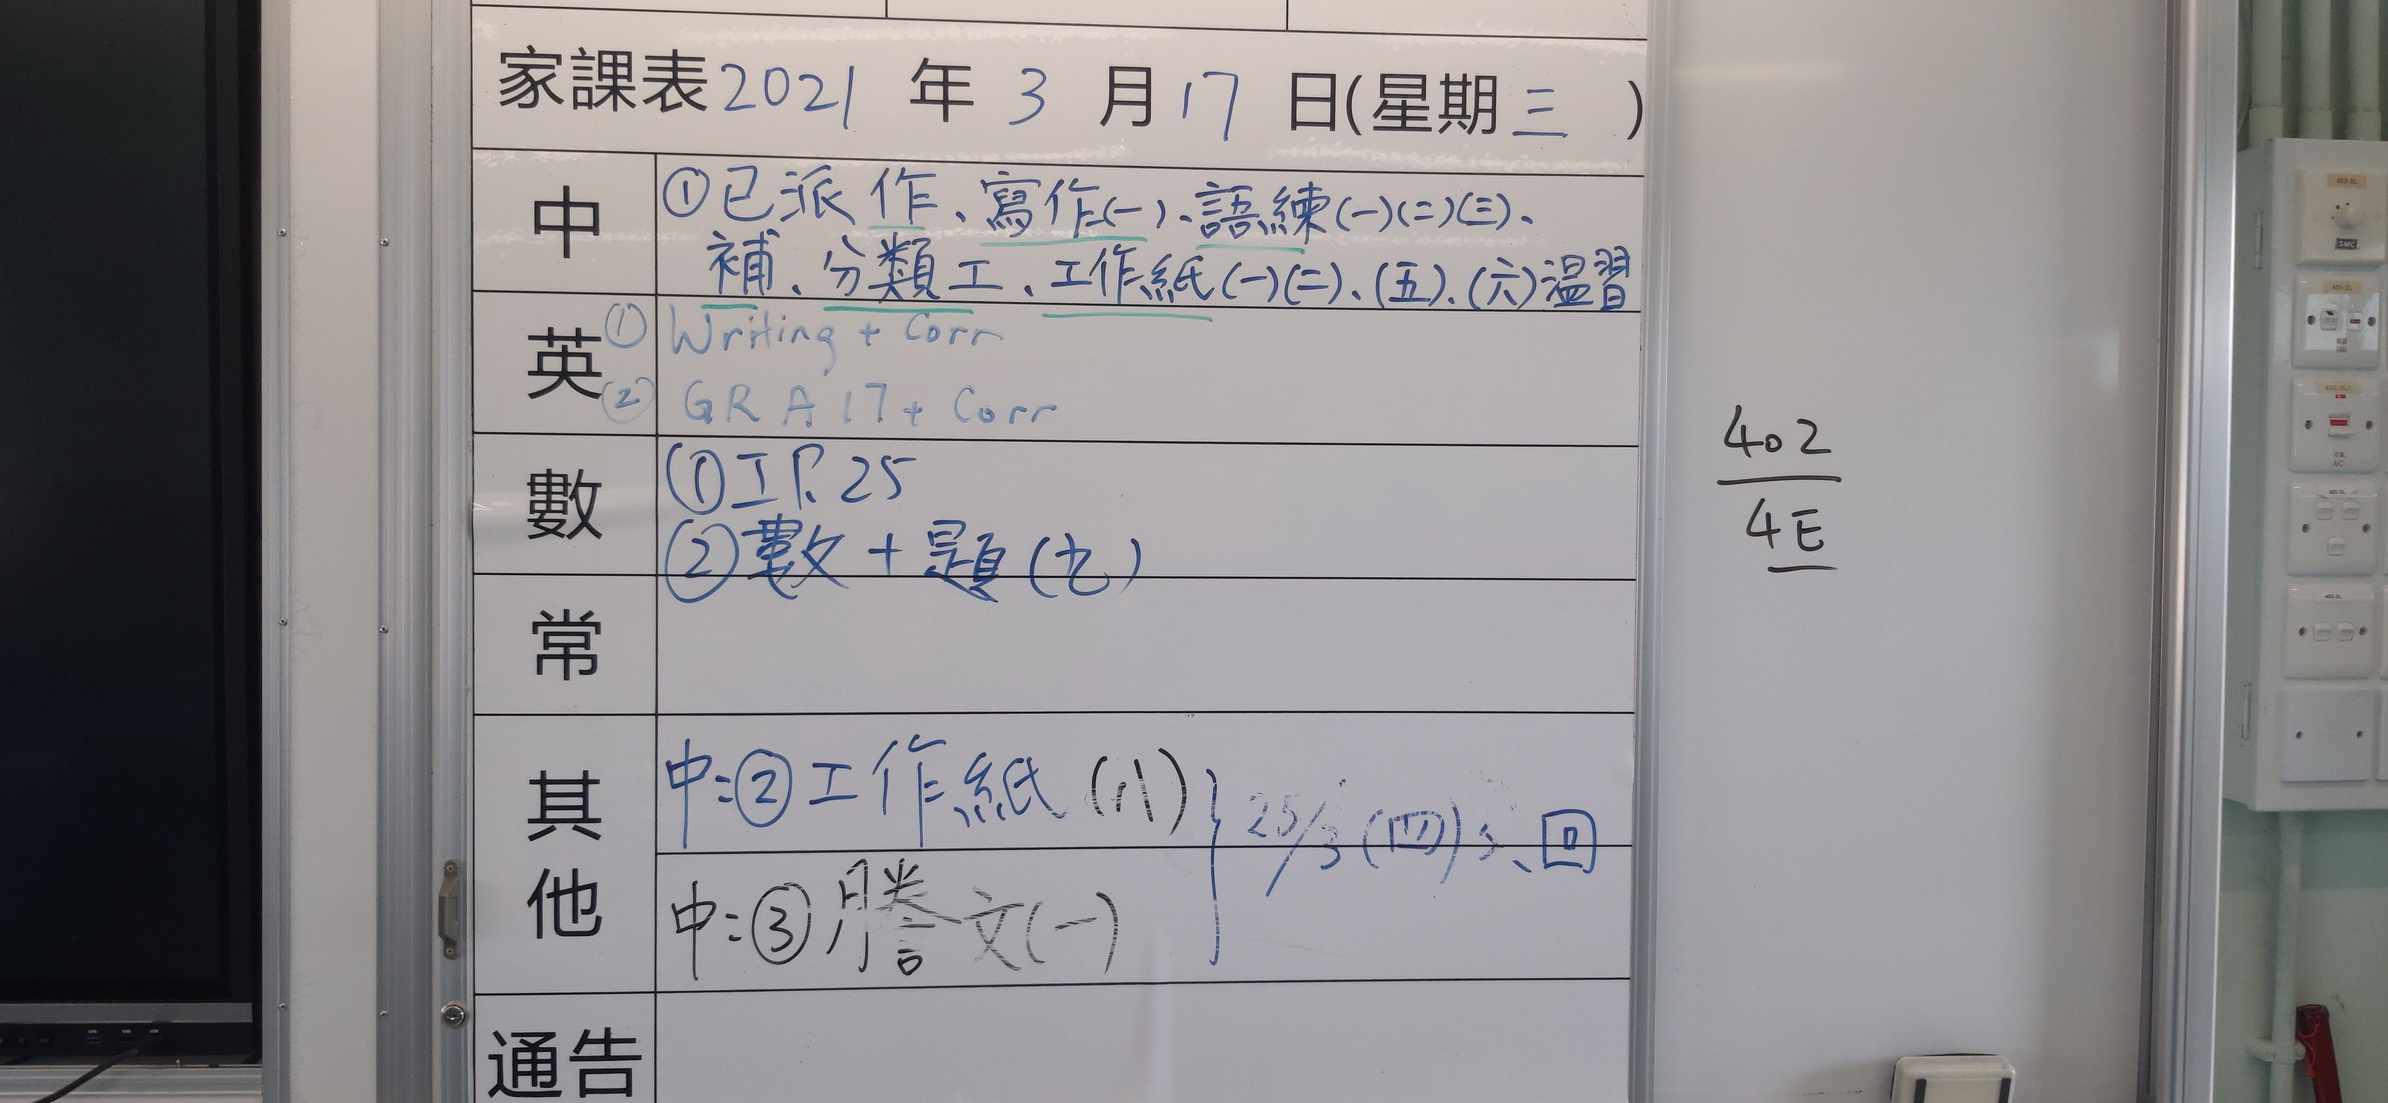 家課表2021 年 3 月 17 日(星期三 )
中 ①已派作、寫作(一)、語練(一)(二)(三)、
補、分類工、工作紙(一)(二)、(五)、(六)温習
英 ① Writing + Corr
② GRA 17 + Corr
數 ①工P.25
②數+題(七)
常
其他 中:②工作紙(八)
25/3(四)交、回
中:③謄文(一)
通告
402
4E